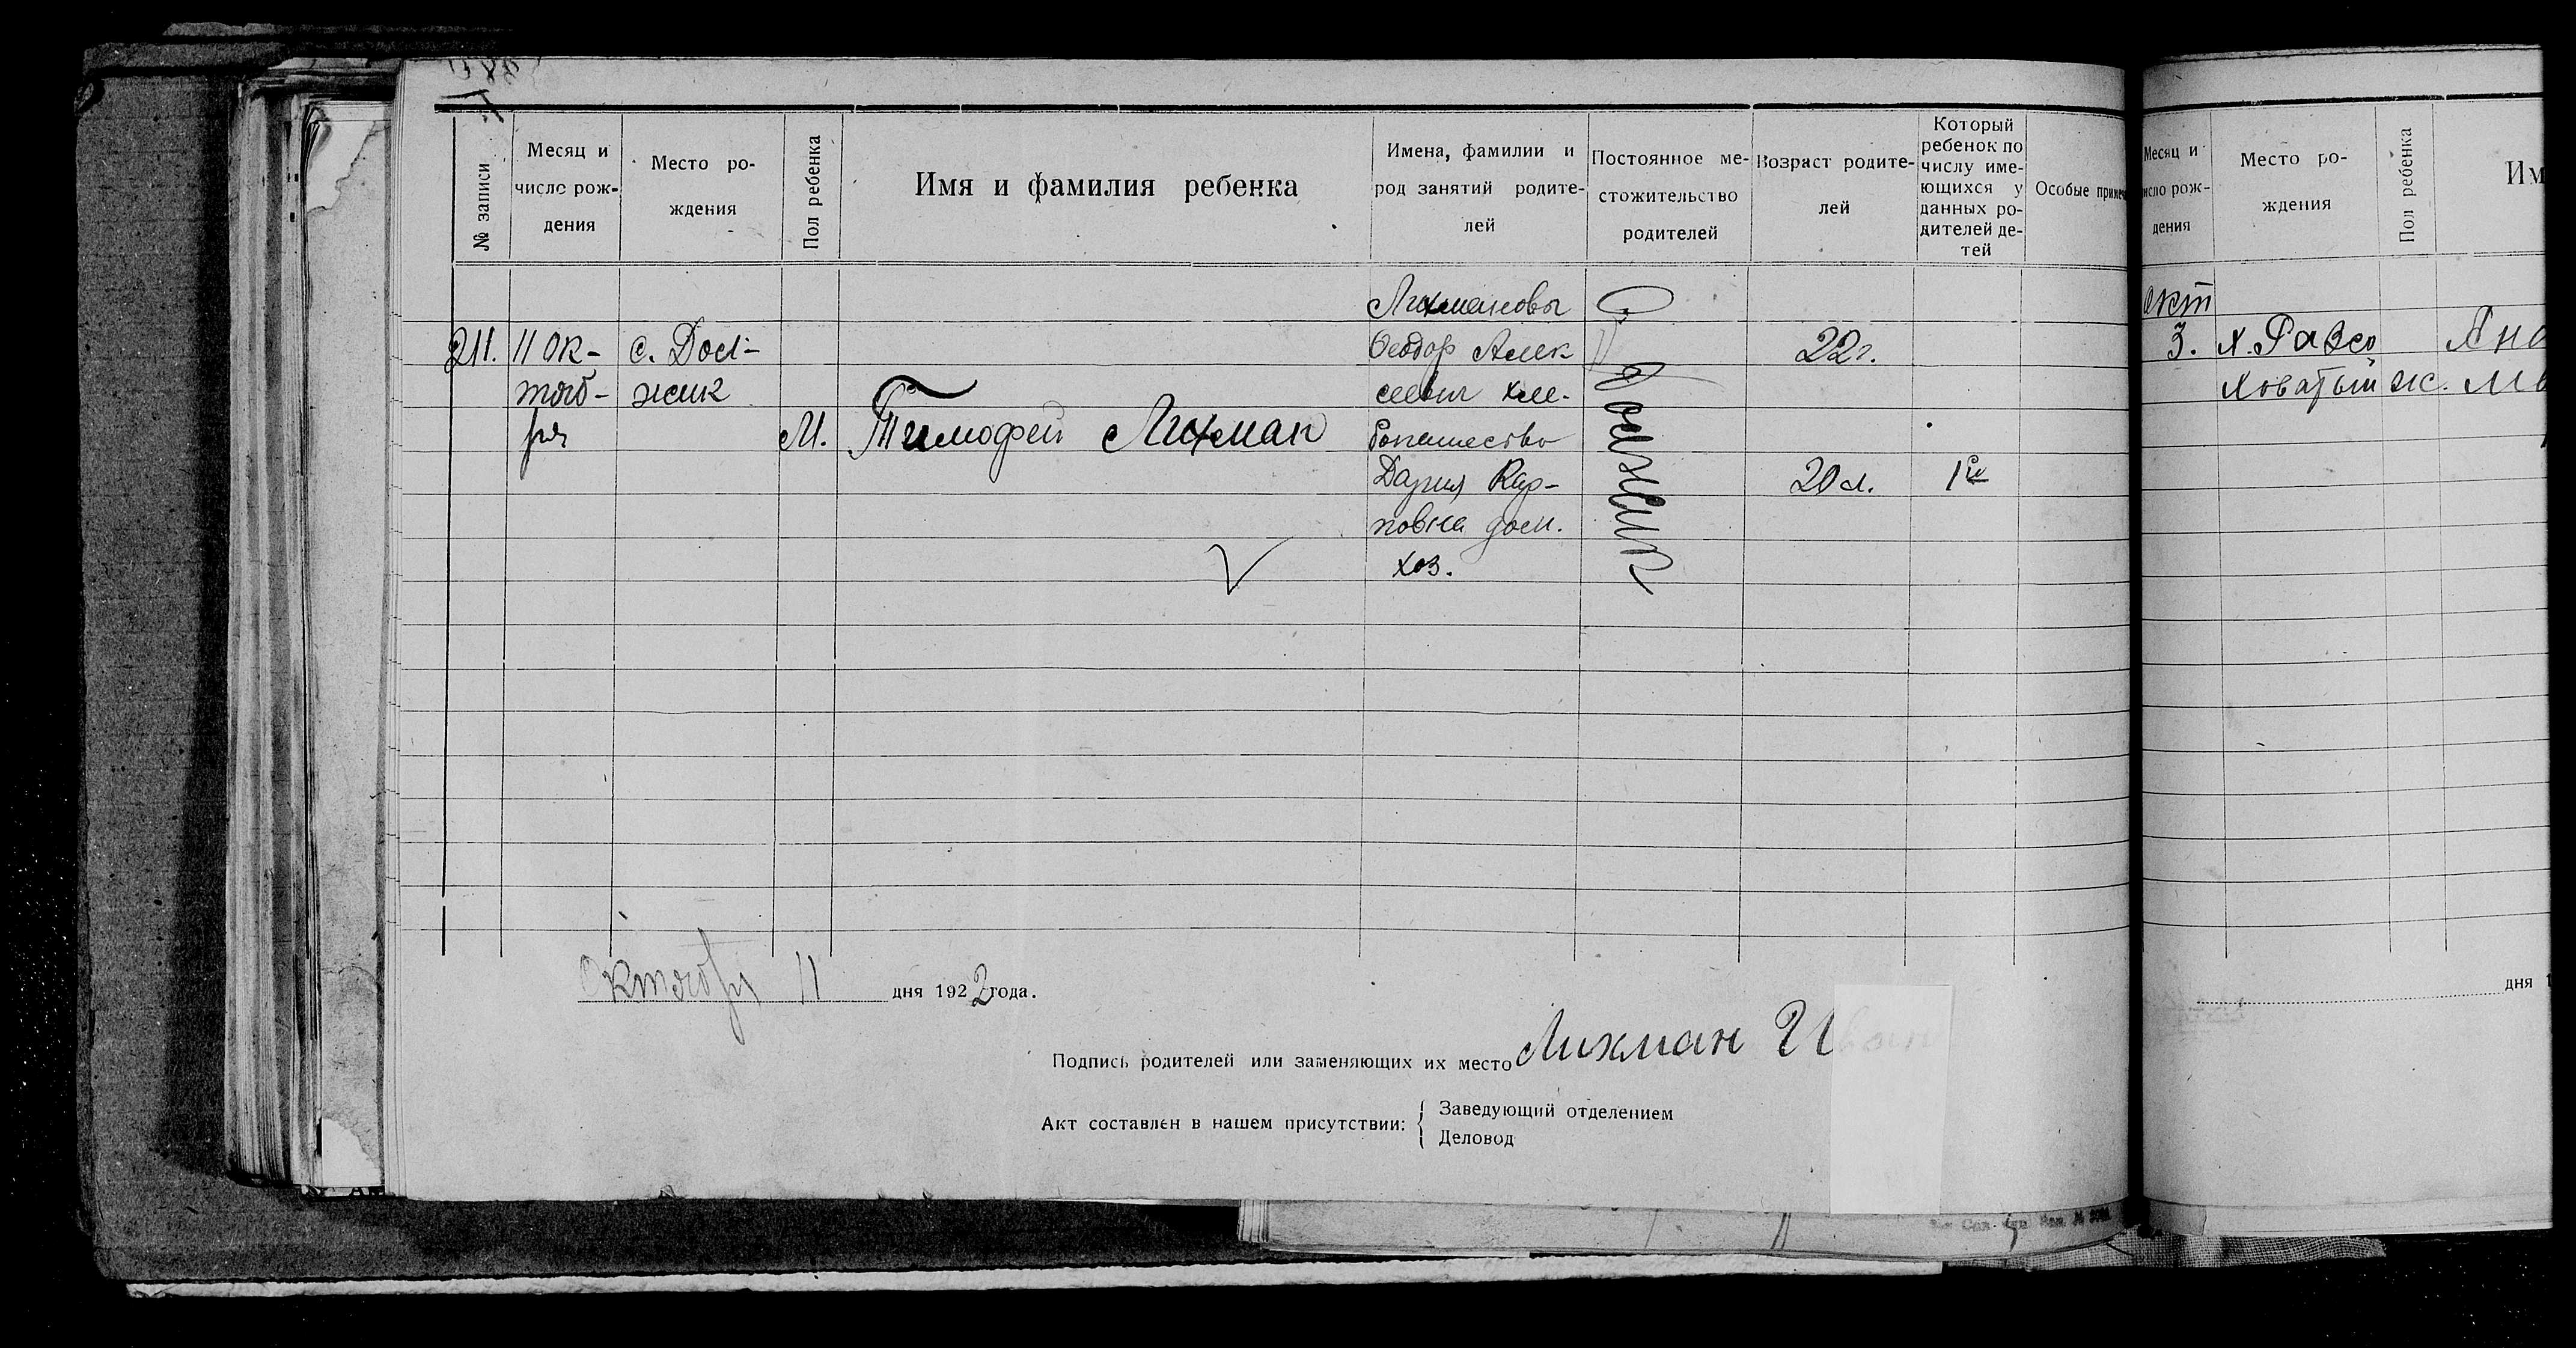 № записи
Месяц и
число рож-
дения
Место ро-
ждения
Пол ребенка
Имя и фамилия ребенка
Имена, фамилии и
род занятий родите-
лей
Постоянное ме-
стожительство
родителей
Возраст родите-
лей
Который
ребенок по
числу име-
ющихся у
данных ро-
дителей де-
тей
Особые примеч
211.
11 ок-
тяб-
ря
с. Дол-
жик
М.
Тимофей Лихман
Лихмановы
Феодор Алек
сеевич хле-
бопашество
Дария Кар-
повна дом.
хоз.
с. Должик
22г.
20 л.
1й
Октября 11 дня 1922 года.
Подпись родителей или заменяющих их место Лихман Иван
Акт составлен в нашем присутствии:
Заведующий отделением
Деловод
Месяц и
число рож-
дения
Место ро-
ждения
Пол ребенка
Им
окт
3.
ж.
дня 1